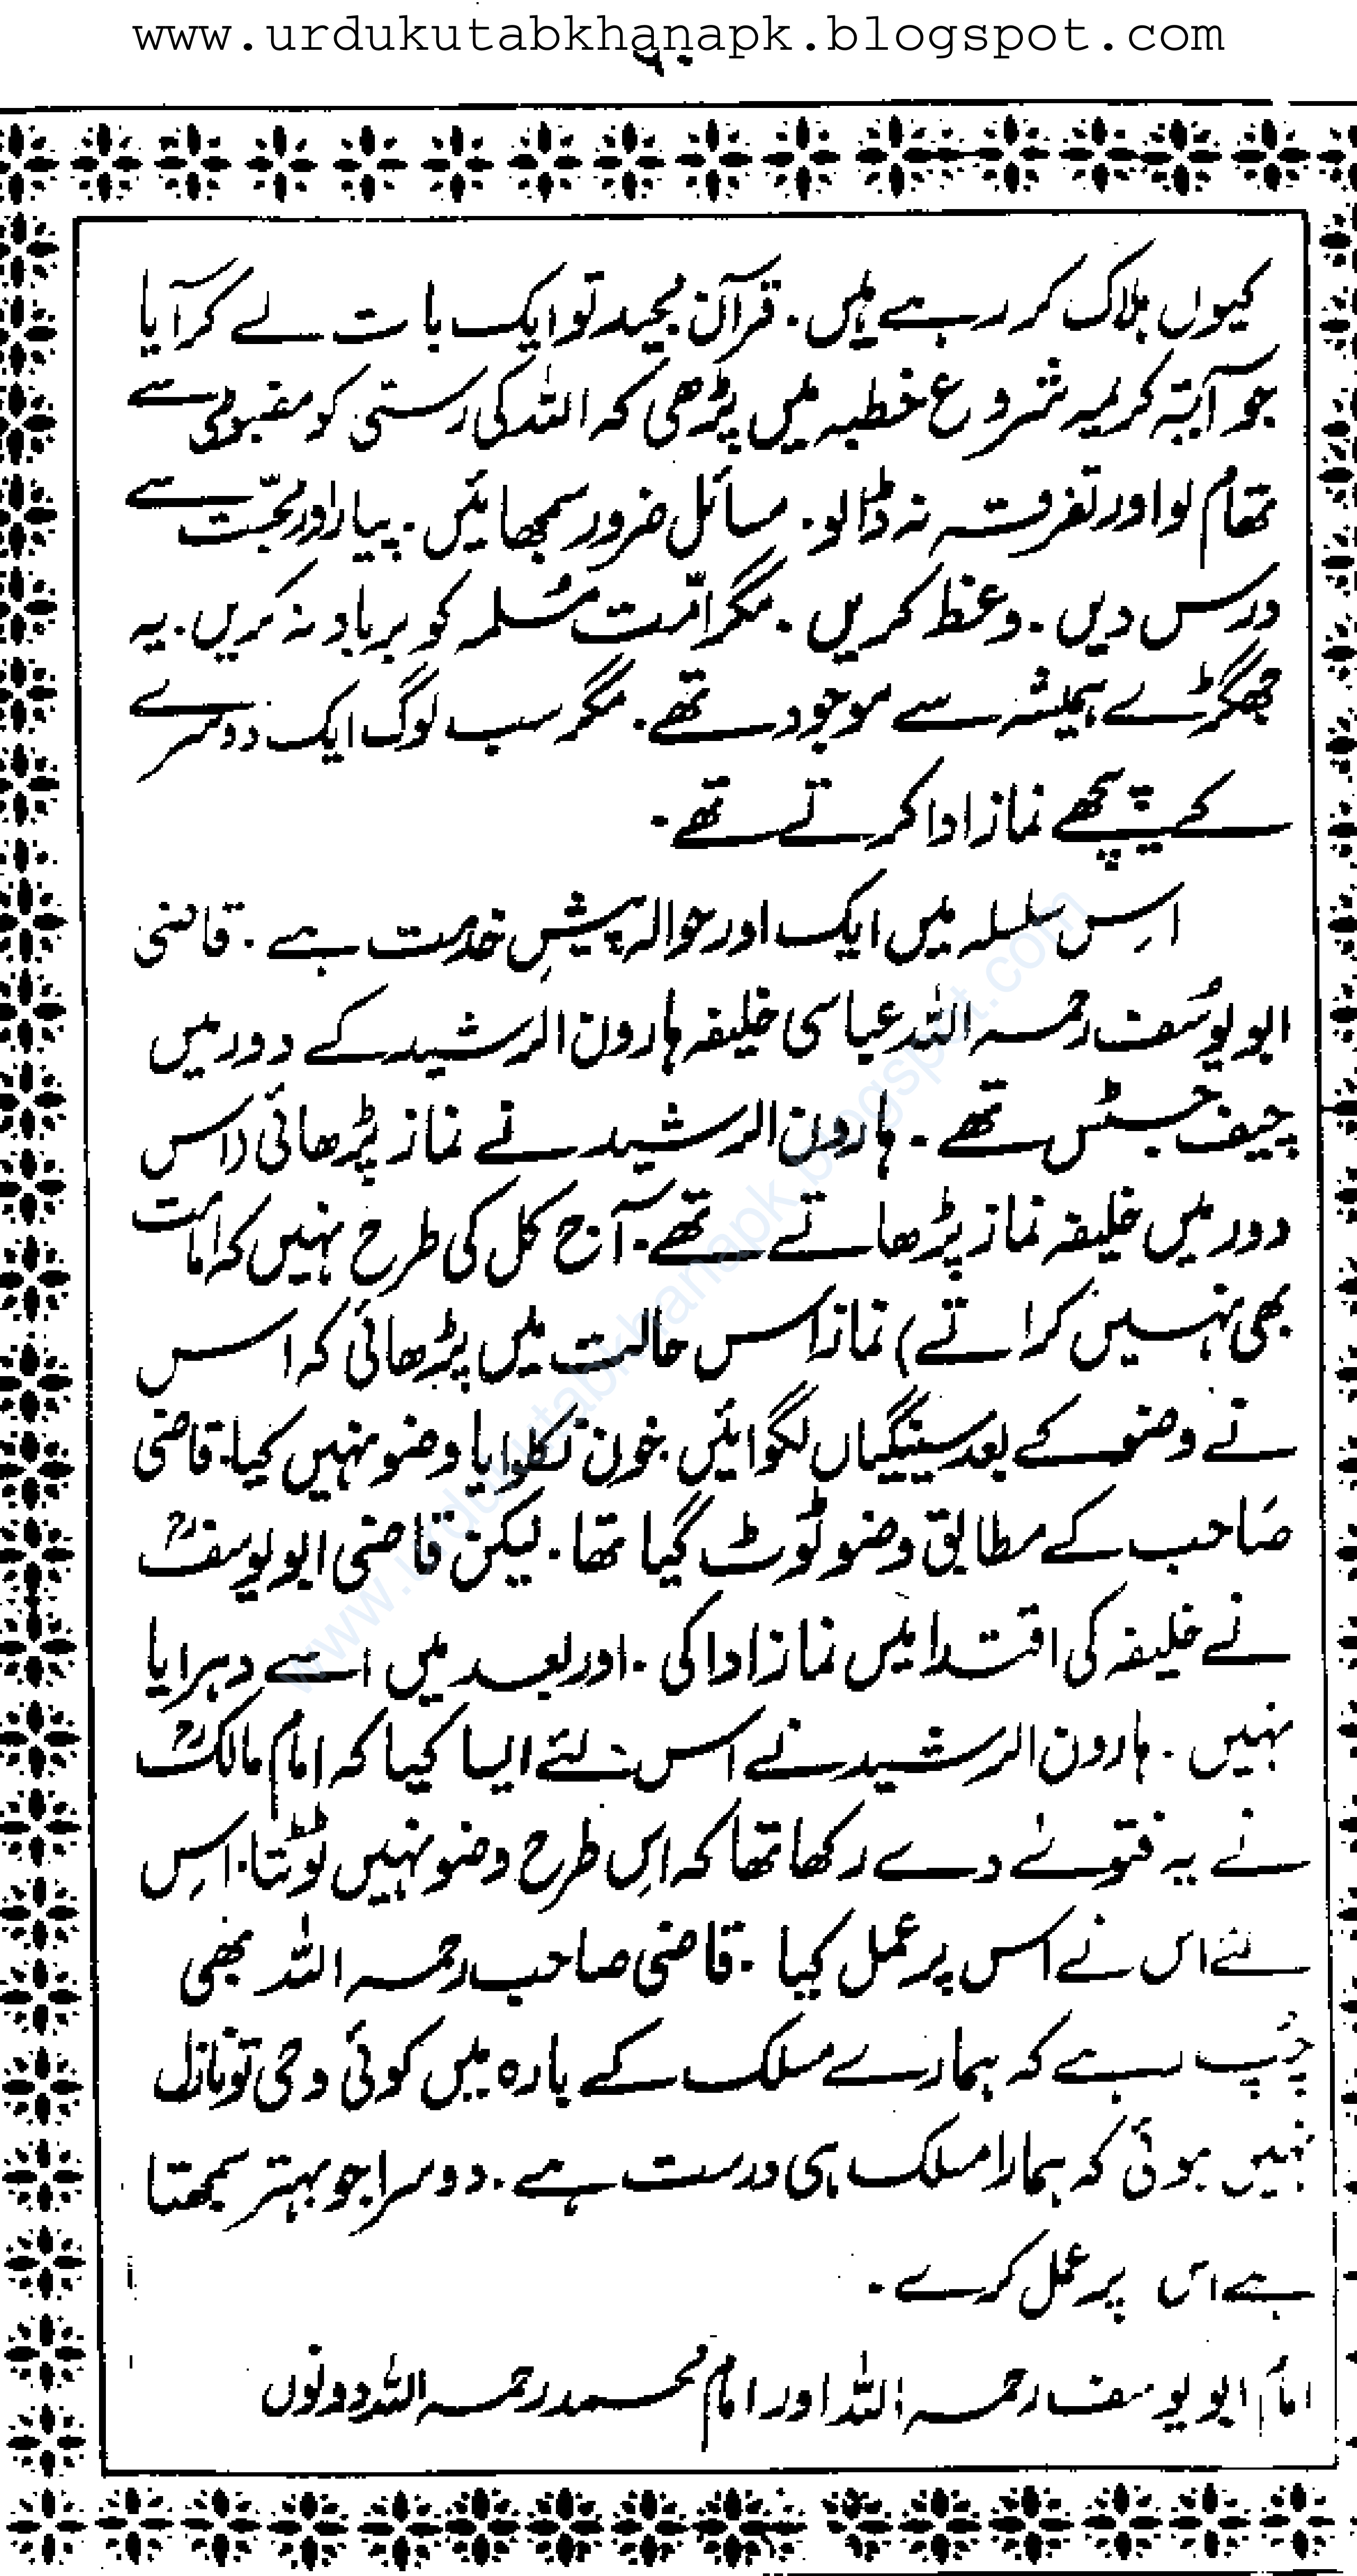 www.urdukutabkhanapk.blogspot.com
۹۰
کیوں ہلاک کر رہے ہیں۔ قرآن مجید تو ایک بات لے کر آیا
جو آیۃ کریمہ شروع خطبہ میں پڑھی کہ اللہ کی رسّی کو مضبوطی سے
تھام لو اور تفرقہ نہ ڈالو۔ مسائل ضرور سمجھائیں۔ پیار اور محبّت سے
درس دیں۔ وعظ کریں۔ مگر امّت مُسلمہ کو برباد نہ کریں۔ یہ
جھگڑے ہمیشہ سے موجود تھے۔ مگر سب لوگ ایک دوسرے
کے پیچھے نماز ادا کرتے تھے۔
اِس سلسلہ میں ایک اور حوالہ پیشِ خدمت ہے۔ قاضی
ابو یوسُف رحمہ اللہ عباسی خلیفہ ہارون الرشید کے دور میں
چیف جسٹس تھے۔ ہارون الرشید نے نماز پڑھائی (اس
دور میں خلیفہ نماز پڑھاتے تھے۔ آج کل کی طرح نہیں کہ امامت
بھی نہیں کراتے) نماز اس حالت میں پڑھائی کہ اس
نے وضو کے بعد سینگیاں لگوائیں خون نکلوایا وضو نہیں کیا۔ قاضی
صَاحب کے مطابق وضو ٹوٹ گیا تھا۔ لیکن قاضی ابو یوسفؒ
نے خلیفہ کی اقتدا میں نماز ادا کی۔ اور بعد میں اسے دہرایا
نہیں۔ ہارون الرشید نے اس لئے ایسا کیا کہ امام مالکؒ
نے یہ فتوےٰ دے رکھا تھا کہ اِس طرح وضو نہیں ٹوٹتا۔ اِس
لئے اس نے اس پر عمل کیا۔ قاضی صاحب رحمہ اللہ بھی
چُپ رہے کہ ہمارے مسلک کے بارہ میں کوئی وحی تو نازل
نہیں ہوئی کہ ہمارا مسلک ہی درست ہے۔ دوسرا جو بہتر سمجھتا
ہے اس پر عمل کرے۔
امام ابو یوسف رحمہ اللہ اور امام محمد رحمہ اللہ دونوں
www.urdukutabkhanapk.blogspot.com